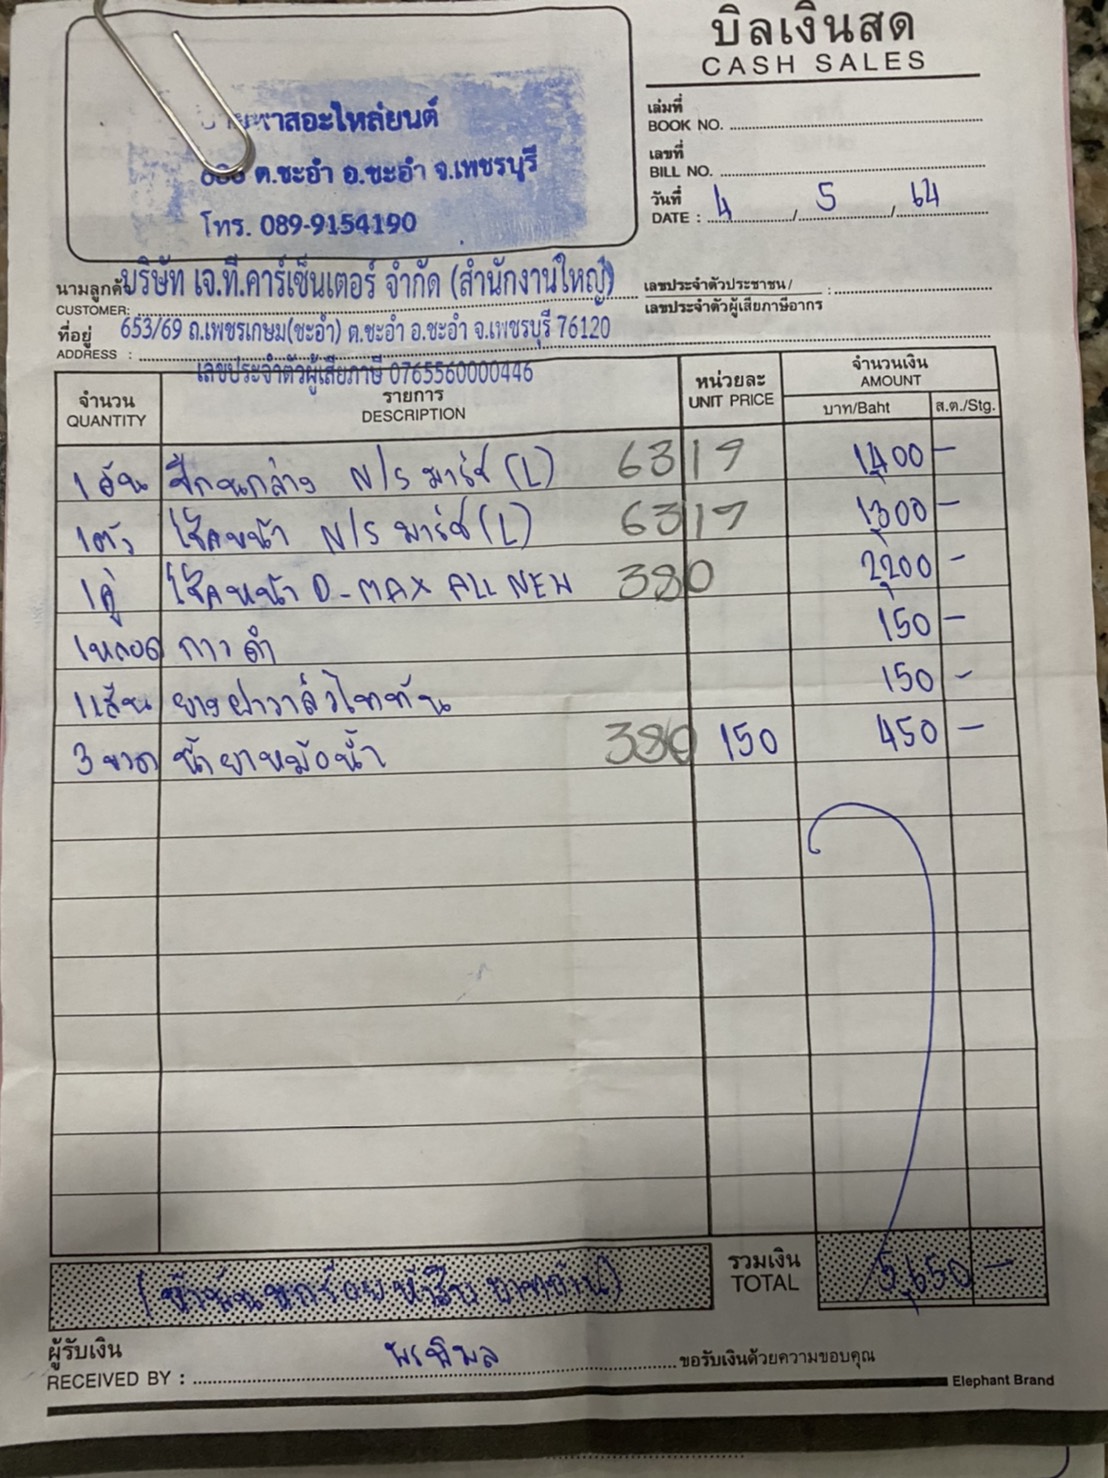 บิลเงินสด
CASH SALES
สอะไหล่ยนต์
ต.ชะอำ อ.ชะอำ จ.เพชรบุรี
โทร. 089-9154190
เล่มที่
BOOK NO.
เลขที่
BILL NO.
วันที่
DATE : 4 / 5 / 64
นามลูกค้า บริษัท เจ.ที.คาร์เซ็นเตอร์ จำกัด (สำนักงานใหญ่)
CUSTOMER:
เลขประจำตัวประชาชน/ :
เลขประจำตัวผู้เสียภาษีอากร
ที่อยู่ 653/69 ถ.เพชรเกษม(ชะอำ) ต.ชะอำ อ.ชะอำ จ.เพชรบุรี 76120
ADDRESS :
เลขประจำตัวผู้เสียภาษี 0765560000446
จำนวน รายการ หน่วยละ จำนวนเงิน
QUANTITY DESCRIPTION UNIT PRICE AMOUNT
บาท/Baht ส.ต./Stg.
1 อัน ปีกนกล่าง N/S มาร์ช (L) 6319 1400 -
1 ตัว โช๊คหน้า N/S มาร์ช (L) 6319 1300 -
1 คู่ โช๊คหน้า D-MAX ALL NEW 380 2200 -
1 หลอด กาวดำ 150 -
1 เส้น ยางฝาวาล์วไททัน 150 -
3 ขวด น้ำยาหม้อน้ำ 380 150 450 -
(ห้าพันหกร้อยห้าสิบบาทถ้วน)
รวมเงิน
TOTAL 5,650 -
ผู้รับเงิน พรพิมล
RECEIVED BY : ขอรับเงินด้วยความขอบคุณ
Elephant Brand